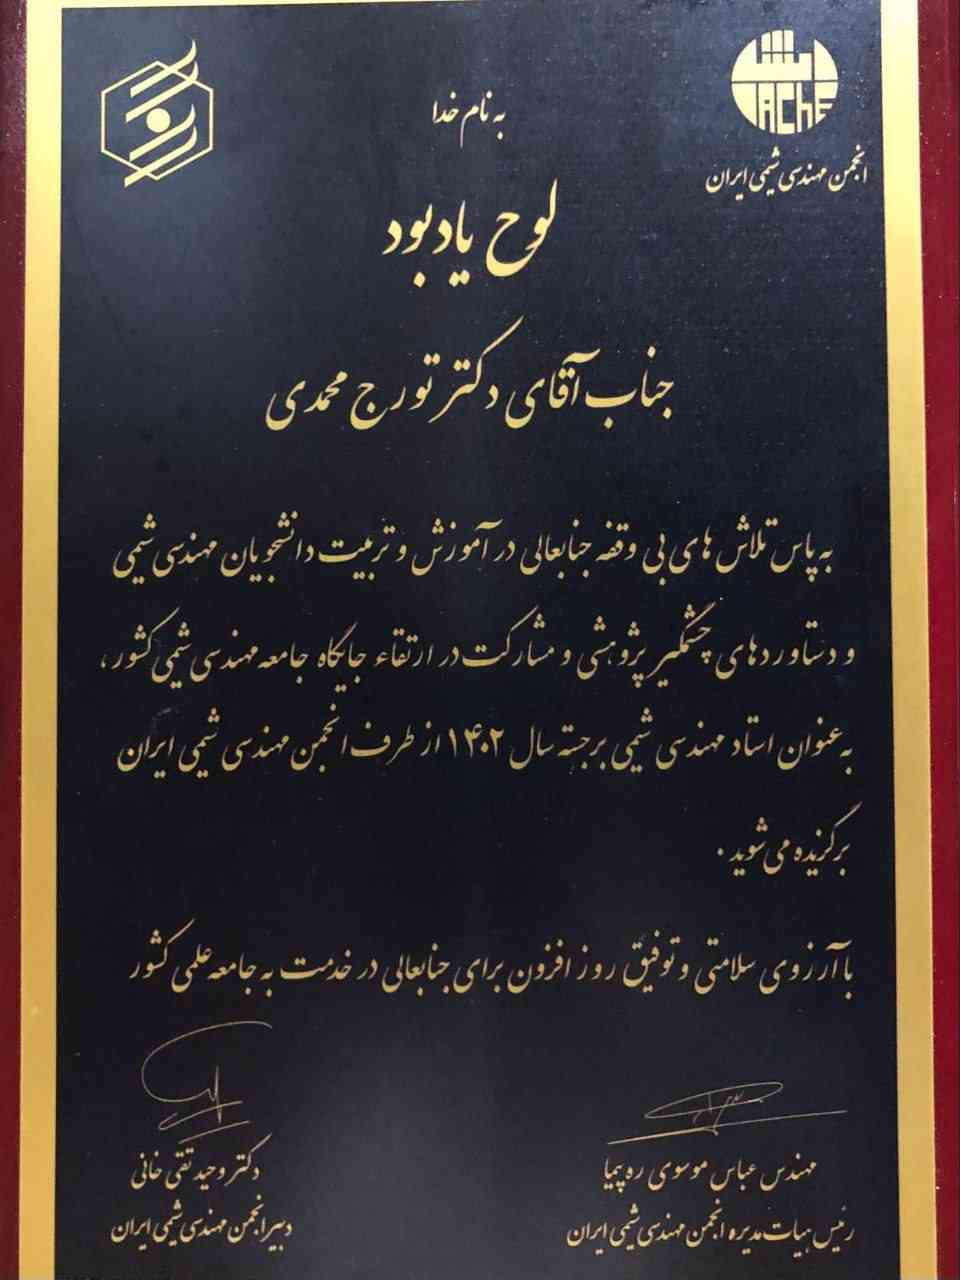 به نام خدا
IAChE
انجمن مهندسی شیمی ایران
لوح یادبود
جناب آقای دکتر تورج محمدی
به پاس تلاش های بی وقفه جنابعالی در آموزش و تربیت دانشجویان مهندسی شیمی
و دستاوردهای چشمگیر پژوهشی و مشارکت در ارتقاء جایگاه جامعه مهندسی شیمی کشور،
به عنوان استاد مهندسی شیمی برجسته سال ۱۴۰۲ از طرف انجمن مهندسی شیمی ایران
برگزیده می شوید.
با آرزوی سلامتی و توفیق روز افزون برای جنابعالی در خدمت به جامعه علمی کشور
مهندس عباس موسوی رهپیما
رئیس هیات مدیره انجمن مهندسی شیمی ایران
دکتر وحید تقی خانی
دبیر انجمن مهندسی شیمی ایران